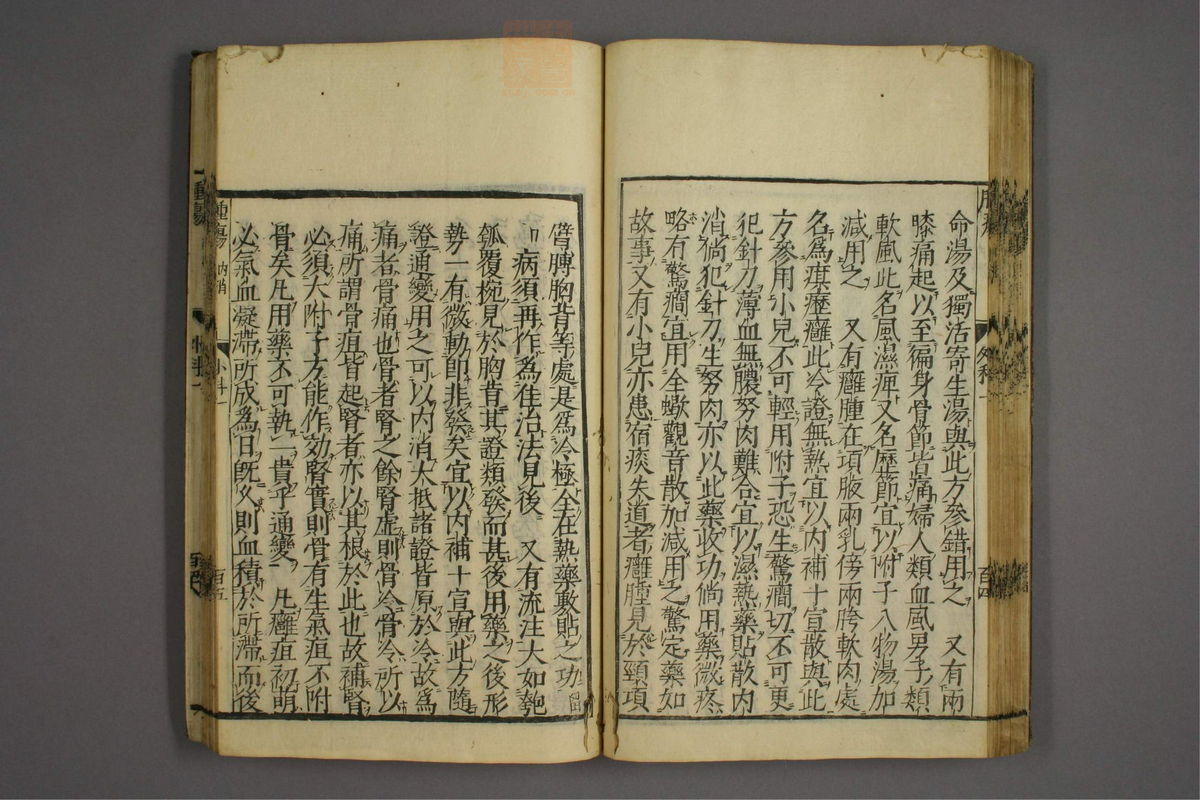 命湯及獨活寄生湯與此方參錯用之　又有兩
膝痛起以至徧身骨節皆痛婦人類血風男子類
軟風此名風濕痺又名歷節宜以附子八物湯加
減用之　又有癰腫在項腋兩乳傍兩胯軟肉處
名爲瘼癧癰此冷證無熱宜以內補十宣散與此
方參用小兒不可輕用附子恐生驚癎切不可更
犯針刀薄血無膿努肉難合宜以濕熱藥貼散內
消倘犯針刀生努肉亦以此藥收功倘用藥微疼
略有驚癎宜用全蠍觀音散加減用之驚定藥如
故事又有小兒亦患宿痰失道者癰腫見於頸項
臂膊胸背等處是爲冷極全在熱藥敷貼之功
病須再作爲佳治法見後　又有流注大如匏
瓠覆椀見於胸背其證類發而甚後用藥之後形
勢一有微動卽非發矣宜以內補十宣與此方隨
證通變用之可以內消大抵諸證皆原於冷故爲
痛者骨痛也骨者腎之餘腎虛則骨冷骨冷所以
痛所謂骨疽皆起腎者亦以其根於此也故補腎
必須大附子方能作効腎實則骨有生氣疽不附
骨矣凡用藥不可執一貴乎通變　凡癰疽初萌
必氣血凝滯所成爲日旣久則血積於所滯而後
腫瘍
外科一
百四
百五